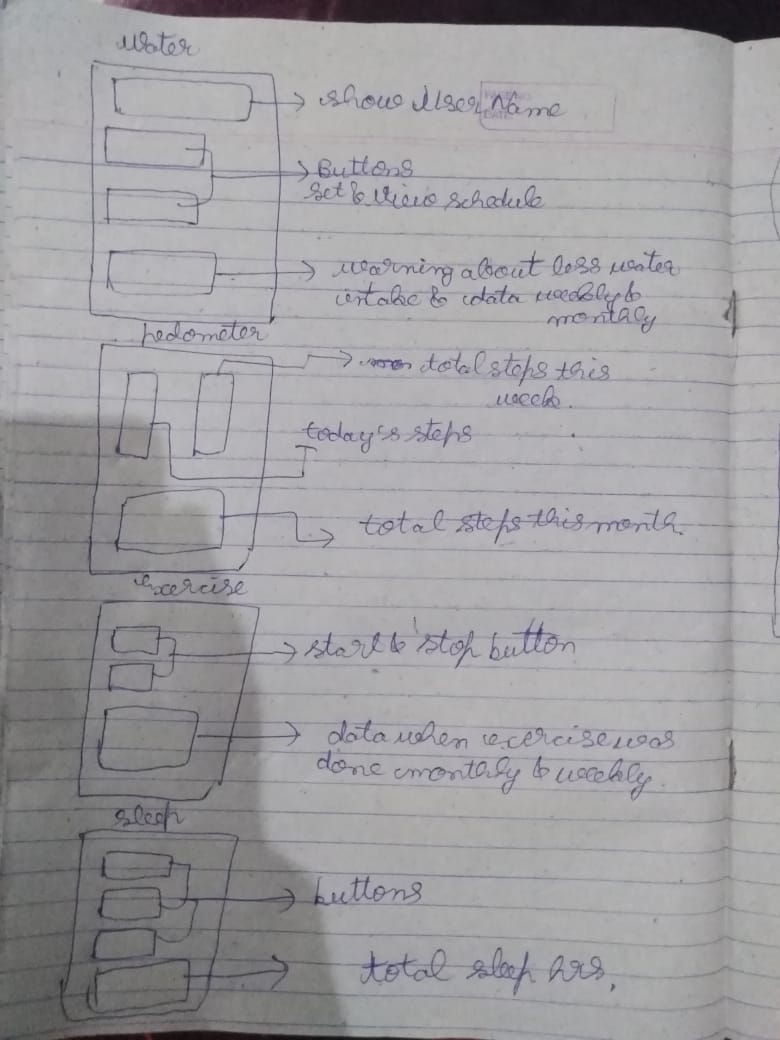 water
show User Name
Buttons
set & view schedule
warning about less water
intake & data weekly &
monthly
pedometer
total steps this
week.
today's steps
total steps this month.
exercise
start & stop button
data when exercise was
done monthly & weekly.
sleep
buttons
total sleep hrs.